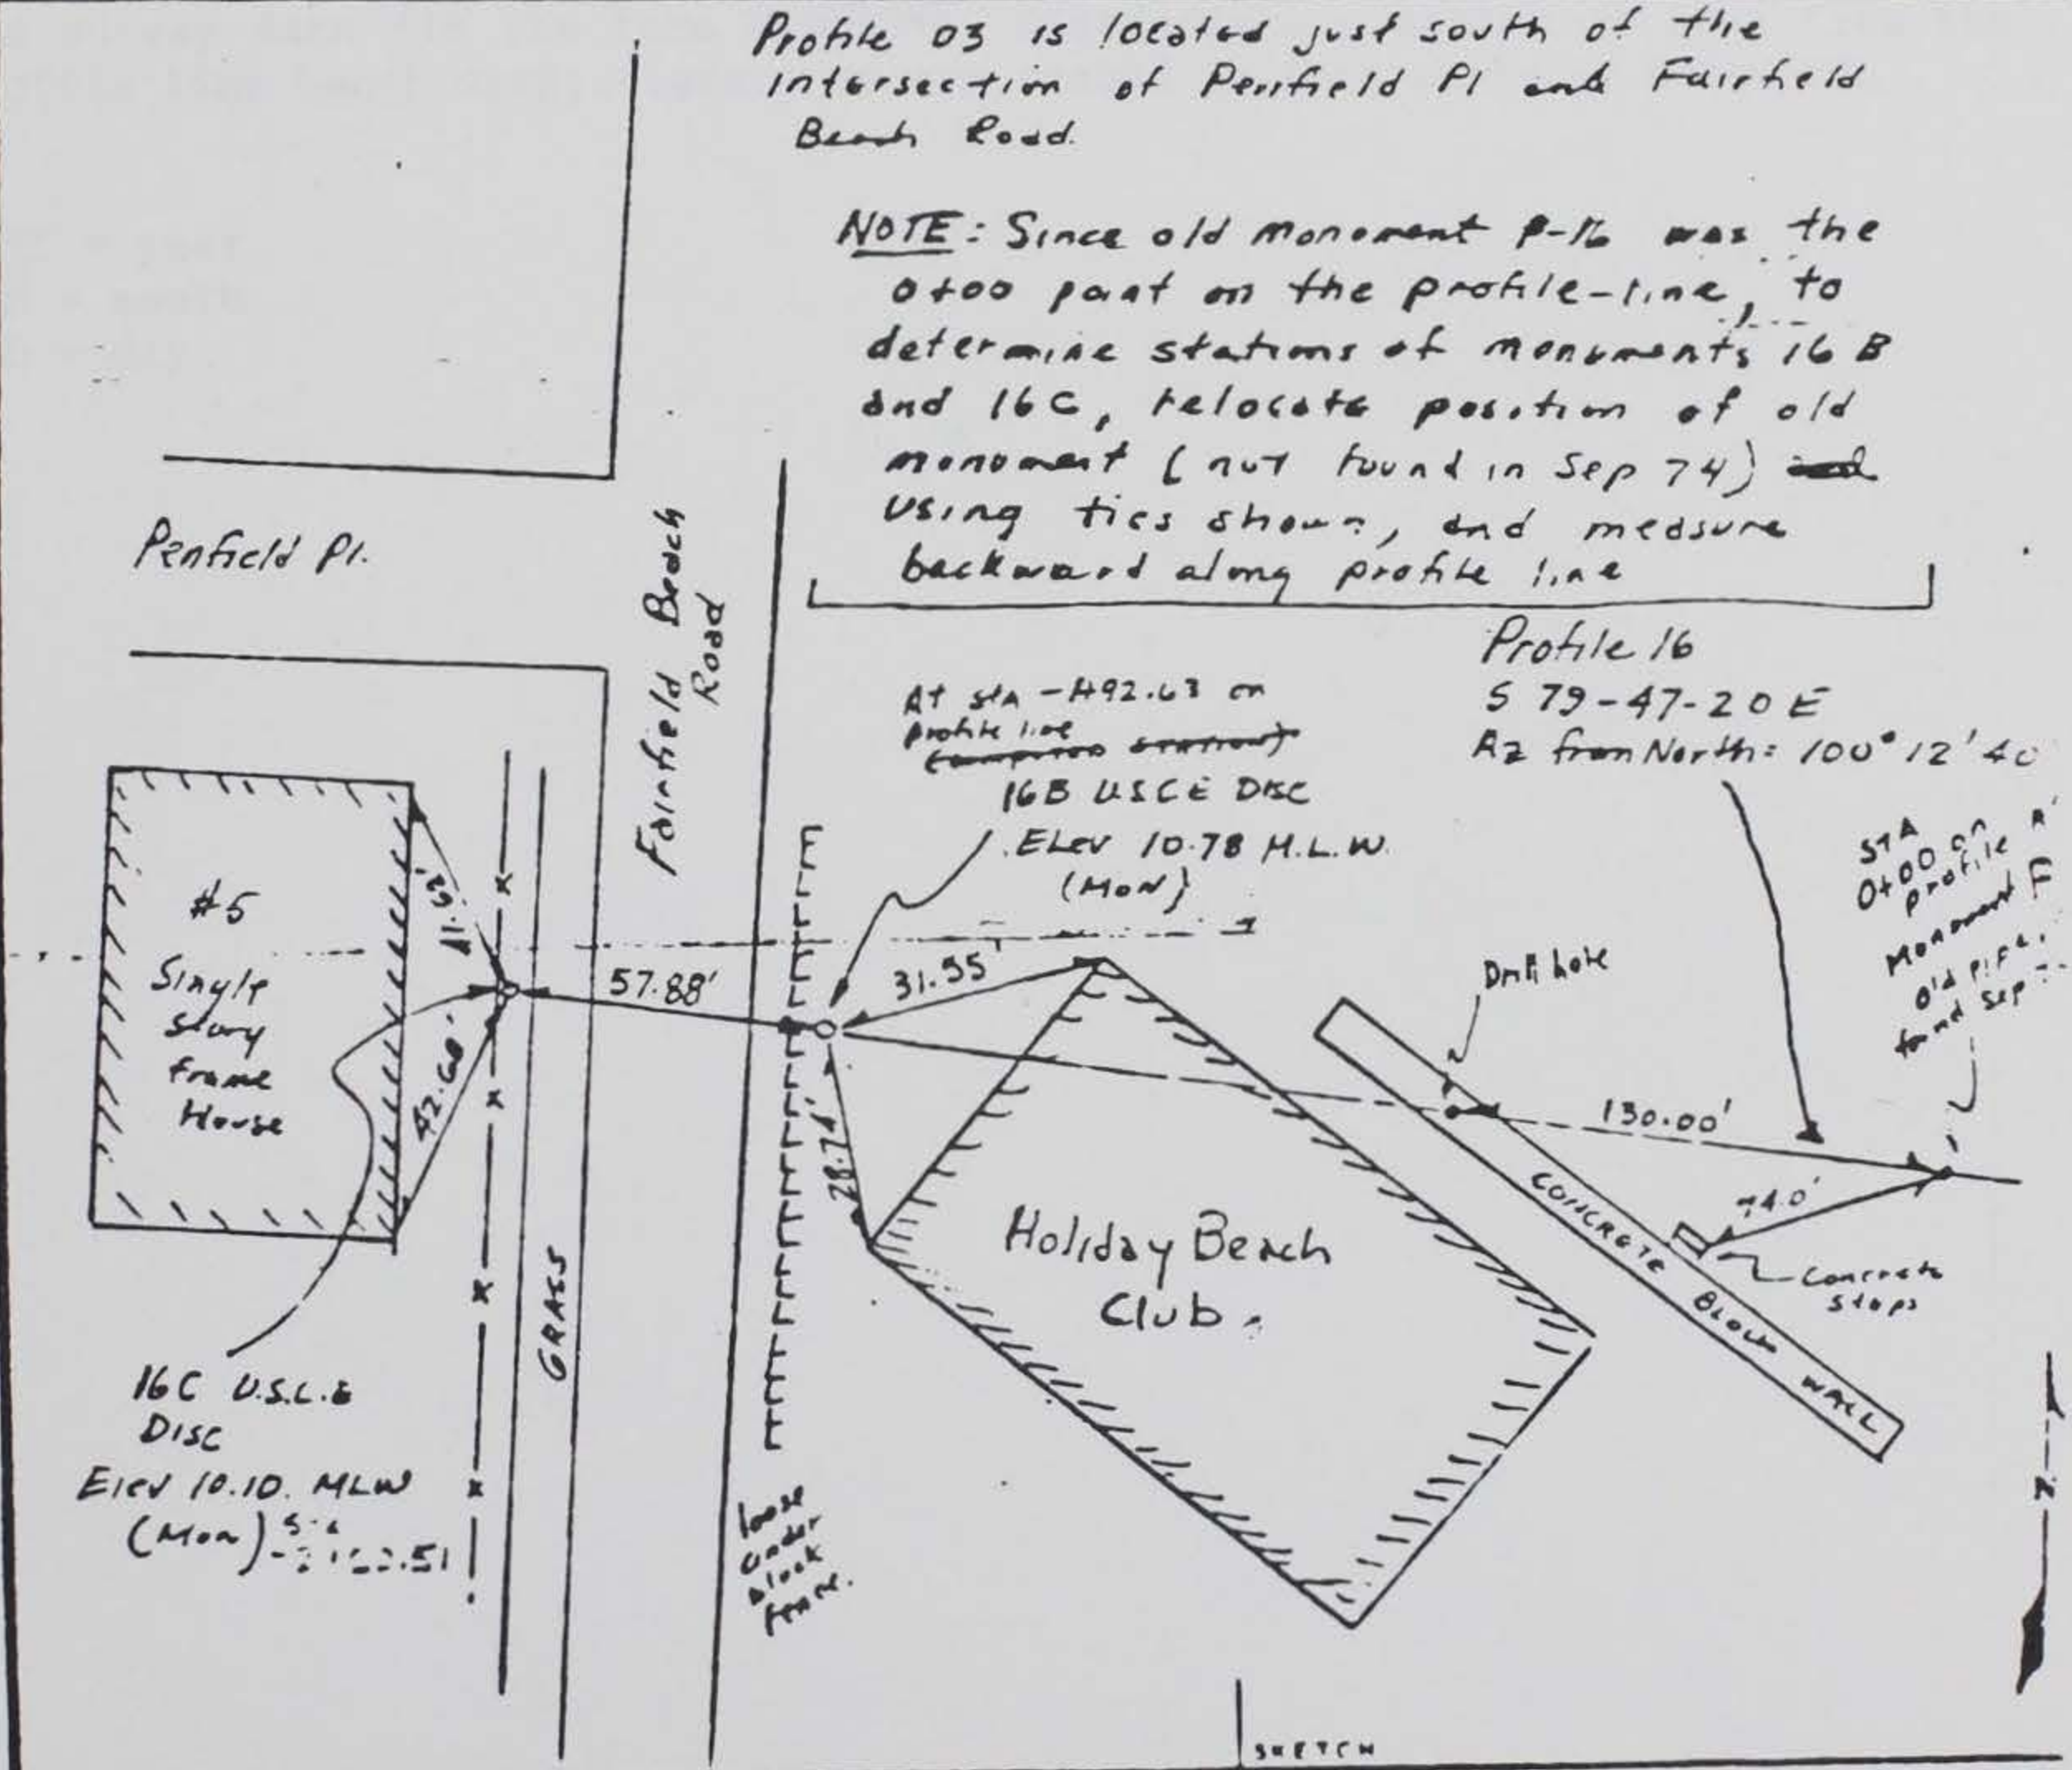 Profile 03 is located just south of the
Intersection of Penfield Pl and Fairfield
Beach Road.
NOTE: Since old monoment P-16 was the
0+00 point on the profile-line, to
determine stations of monuments 16 B
and 16C, relocate position of old
monoment (not found in Sep 74)
using ties shown, and measure
backward along profile line
Penfield Pl.
Fairfield Beach
Road
Profile 16
S 79-47-20 E
Az from North: 100° 12' 40
At sta -1+92.63 on
profile line
16B USCE DISC
Elev 10.78 M.L.W.
(MON)
STA
0+00 on
profile
Monument
Old pipe
found Sep
#5
Single
Story
Frame
House
11.62'
42.60'
57.88'
31.55'
28.71'
Drill hole
130.00'
74.0'
Concrete
steps
CONCRETE BLOCK WALL
Holiday Beach
Club
GRASS
16C U.S.C.E
DISC
Elev 10.10. MLW
(Mon)
.51
N
SKETCH